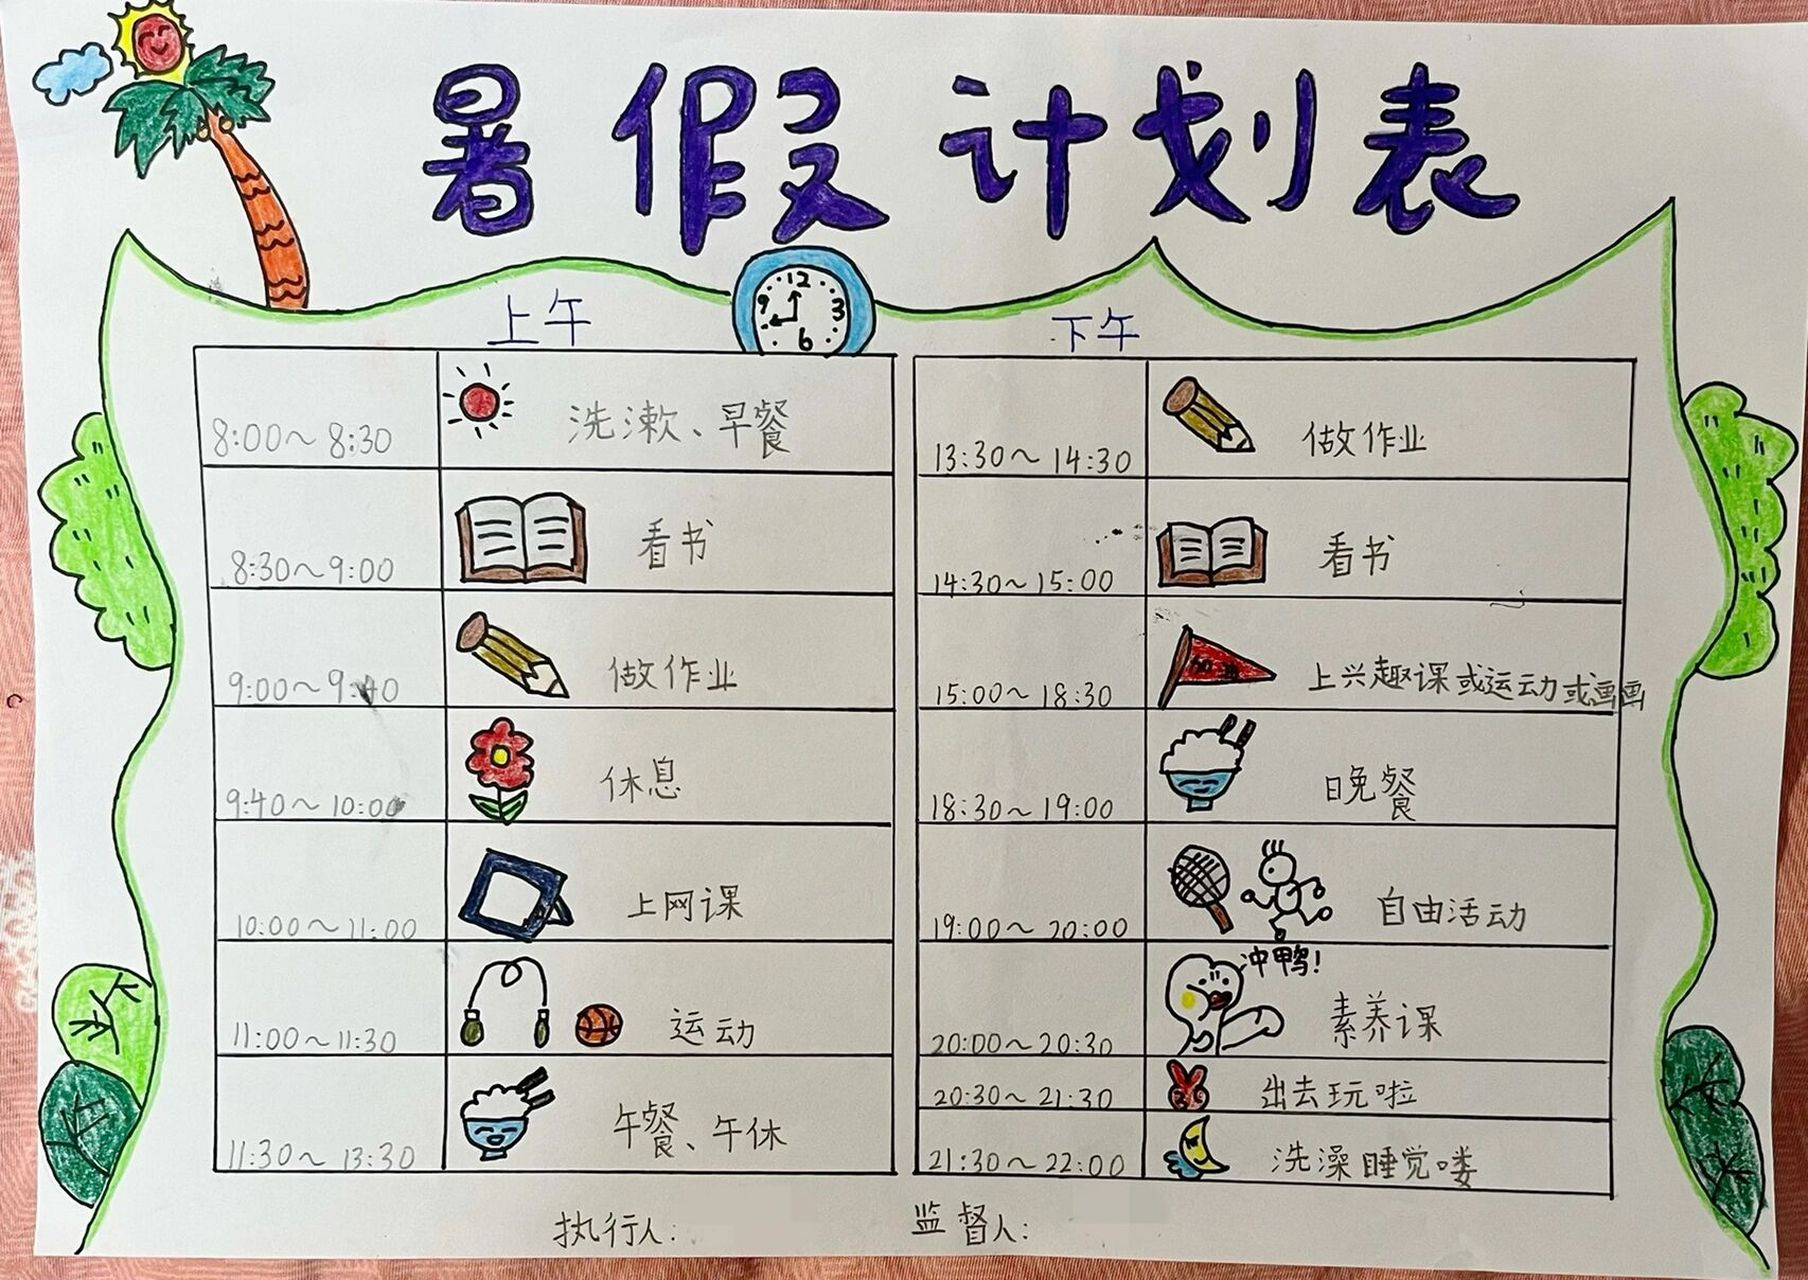 暑假计划表
12
9 3
6
上午
8:00～8:30 洗漱、早餐
8:30～9:00 看书
9:00～9:40 做作业
9:40～10:00 休息
10:00～11:00 上网课
11:00～11:30 运动
11:30～13:30 午餐、午休
下午
13:30～14:30 做作业
14:30～15:00 看书
15:00～18:30 上兴趣课或运动或画画
18:30～19:00 晚餐
19:00～20:00 自由活动
冲鸭!
20:00～20:30 素养课
20:30～21:30 出去玩啦
21:30～22:00 洗澡睡觉喽
执行人: 监督人: